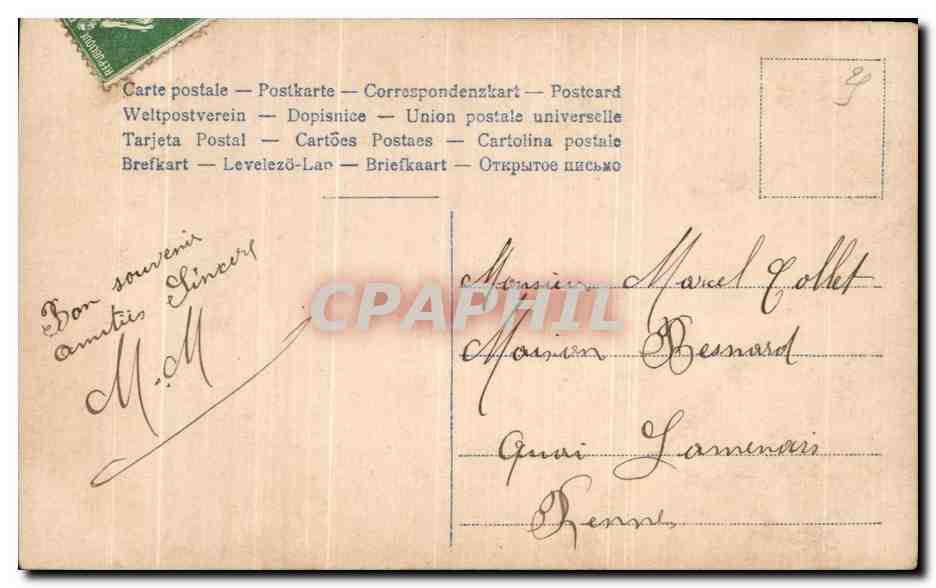 REPUBLIQUE
Carte postale — Postkarte — Correspondenzkart — Postcard
Weltpostverein — Dopisnice — Union postale universelle
Tarjeta Postal — Cartões Postaes — Cartolina postale
Brefkart — Levelező-Lap — Briefkaart — Открытое письмо
Bon souvenir
amitiés Sincère
M.M
CPAPHIL
Monsieur Marcel Collet
Maison Besnard
Quai Lamenais
Rennes